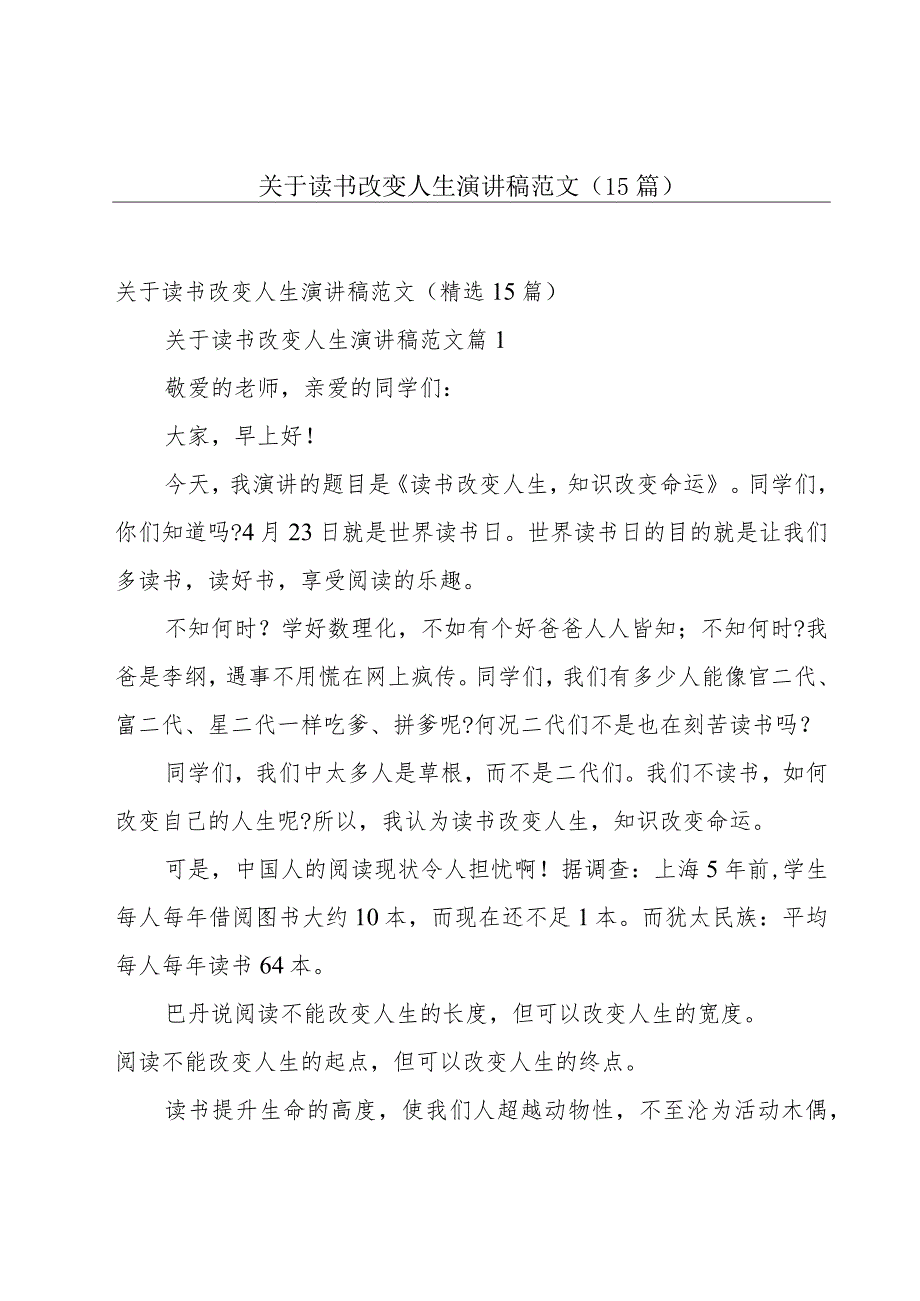 关于读书改变人生演讲稿范文（15 篇）
关于读书改变人生演讲稿范文（精选 15 篇）
关于读书改变人生演讲稿范文篇 1
敬爱的老师，亲爱的同学们：
大家，早上好！
今天，我演讲的题目是《读书改变人生，知识改变命运》。同学们，
你们知道吗?4 月 23 日就是世界读书日。世界读书日的目的就是让我们
多读书，读好书，享受阅读的乐趣。
不知何时？学好数理化，不如有个好爸爸人人皆知；不知何时?我
爸是李纲，遇事不用慌在网上疯传。同学们，我们有多少人能像官二代、
富二代、星二代一样吃爹、拼爹呢?何况二代们不是也在刻苦读书吗？
同学们，我们中太多人是草根，而不是二代们。我们不读书，如何
改变自己的人生呢?所以，我认为读书改变人生，知识改变命运。
可是，中国人的阅读现状令人担忧啊！据调查：上海 5 年前,学生
每人每年借阅图书大约 10 本，而现在还不足 1 本。而犹太民族：平均
每人每年读书 64 本。
巴丹说阅读不能改变人生的长度，但可以改变人生的宽度。
阅读不能改变人生的起点，但可以改变人生的终点。
读书提升生命的高度，使我们人超越动物性，不至沦为活动木偶，